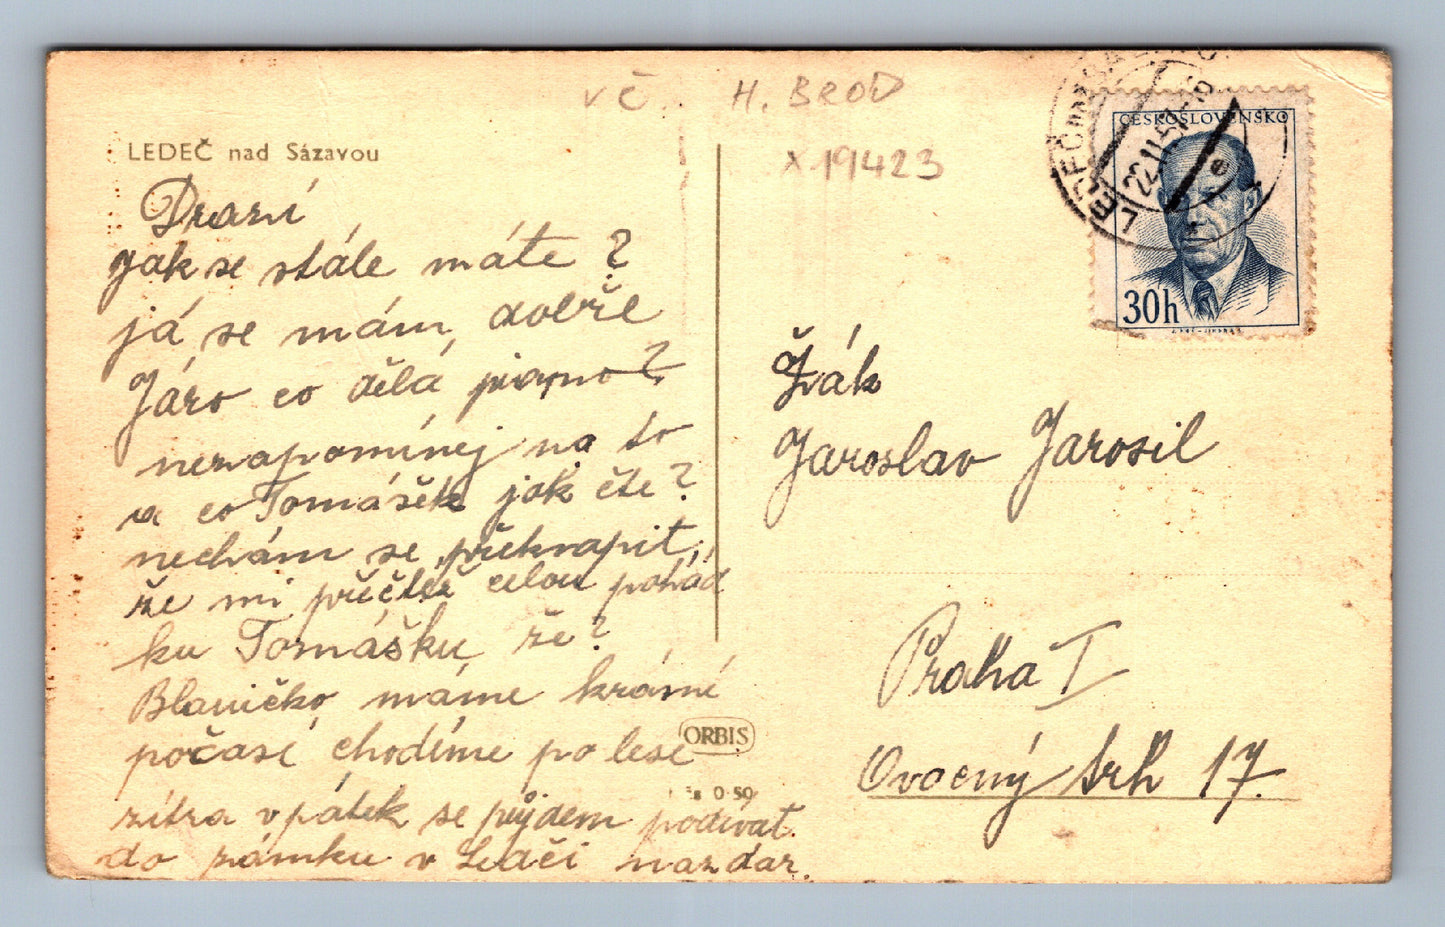 vč H. BROD
x 19423
LEDEČ nad Sázavou
Drazí
jak se stále máte?
já se mám dobře
Járo co dělá piano?
nezapomínej na to
a co Tomášek jak čte?
nechám se překvapit,
že mi přečteš celou pohád
ku Tomášku že?
Blaničko máme krásné
počasí chodíme po lese
zítra v pátek se půjdem podívat
do zámku v Ledči nazdar.
ORBIS
0·50
ČESKOSLOVENSKO
30h
22.11.57-16
Žák
Jaroslav Jarosil
Praha I
Ovocný trh 17.